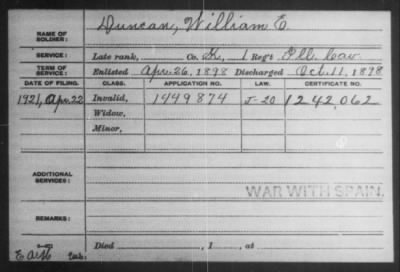 NAME OF SOLDIER: Duncan, William E.
SERVICE: Late rank, Co. K, 1 Reg't Ill. Cav.
TERM OF SERVICE: Enlisted Apr. 26, 1898 Discharged Oct. 11, 1898
DATE OF FILING. CLASS. APPLICATION NO. LAW. CERTIFICATE NO.
1921, Apr. 22 Invalid, 1449874 J-20 1242,062
Widow,
Minor,
ADDITIONAL SERVICES:
WAR WITH SPAIN.
REMARKS:
Died , 1 , at